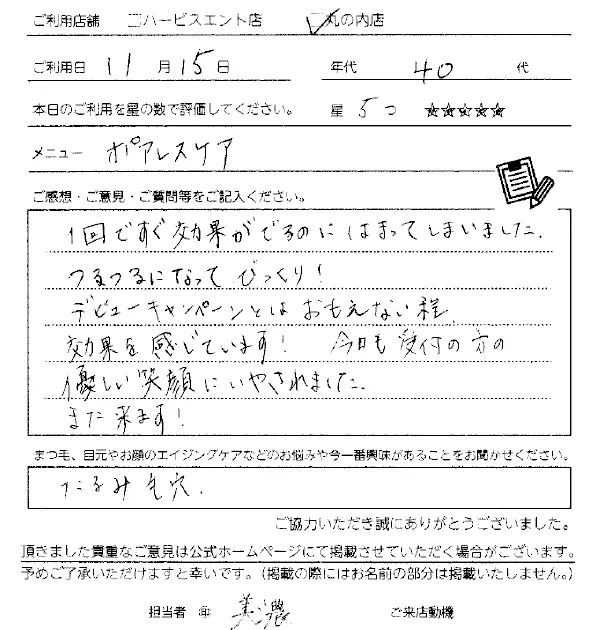 ご利用店舗 □ハービスエント店 ☑丸の内店
ご利用日 11月15日 年代 40代
本日のご利用を星の数で評価してください。 星 5つ ☆☆☆☆☆
メニュー ポアレスケア
ご感想・ご意見・ご質問等をご記入ください。
1回ですぐ効果がでるのにはまってしまいました.
つるつるになってびっくり!
デビューキャンペーンとはおもえない程、
効果を感じています! 今日も受付の方の
優しい笑顔にいやされました.
また来ます!
まつ毛、目元やお顔のエイジングケアなどのお悩みや今一番興味があることをお聞かせください。
たるみ毛穴.
ご協力いただき誠にありがとうございました。
頂きました貴重なご意見は公式ホームページにて掲載させていただく場合がございます。
予めご了承いただけますと幸いです。(掲載の際にはお名前の部分は掲載いたしません。)
担当者 美濃 ご来店動機